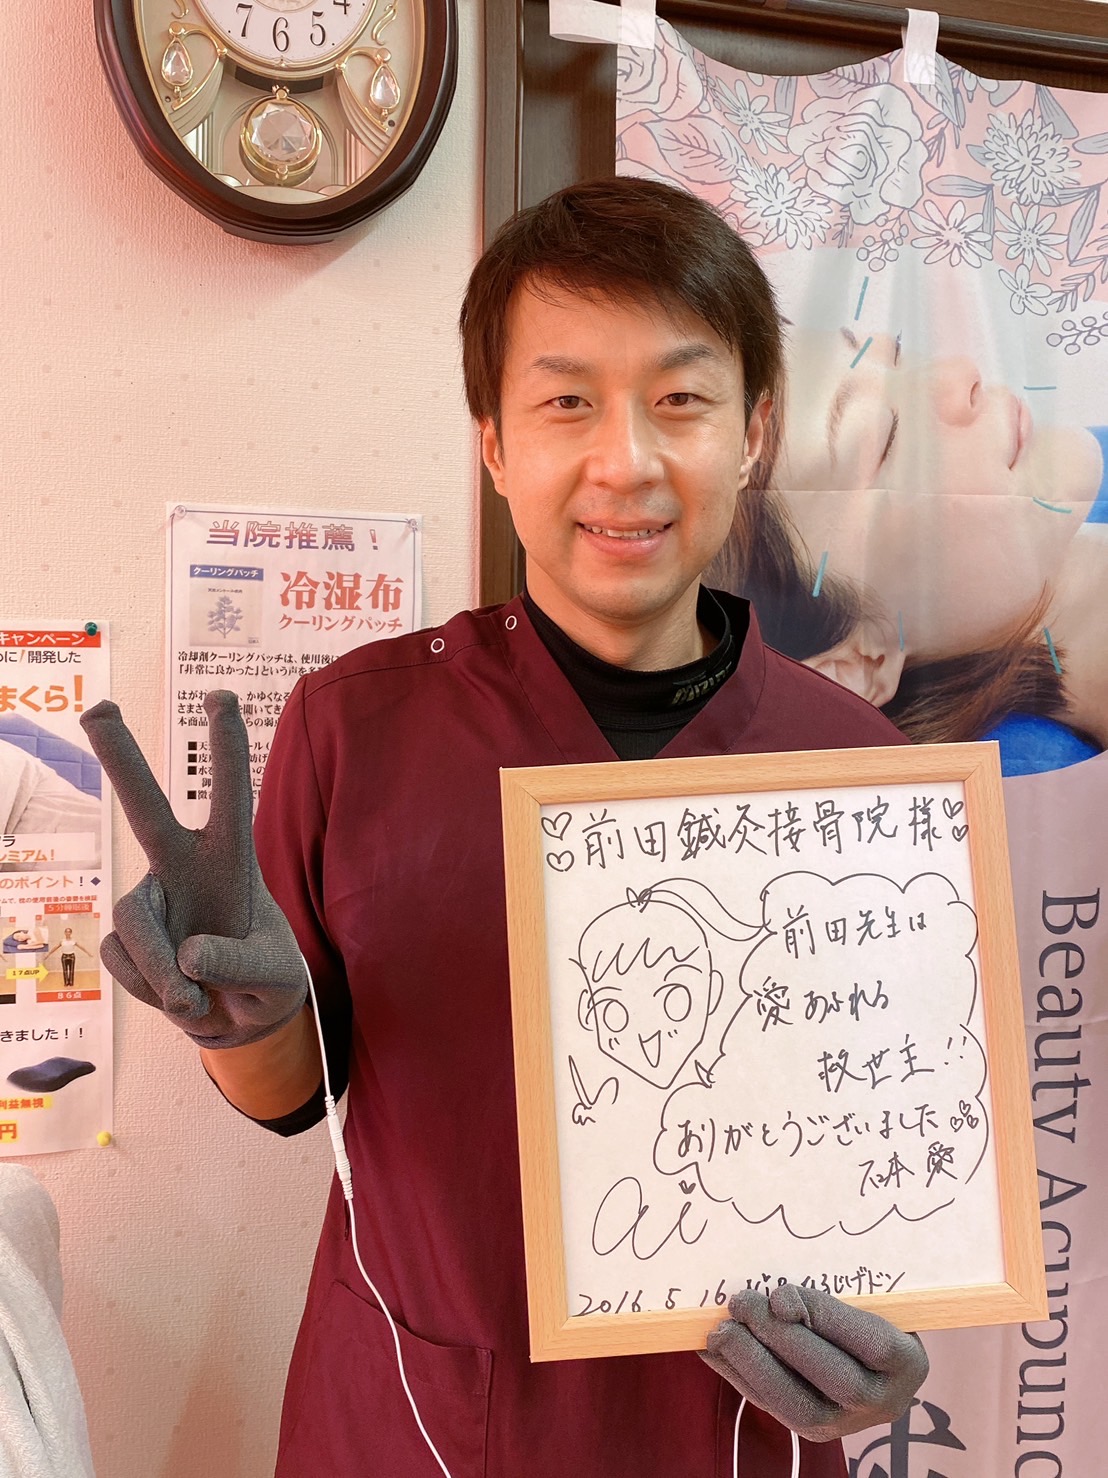 7 6 5 4
当院推薦！
クーリングパッチ
冷湿布
クーリングパッチ
冷却剤クーリングパッチは、使用後に
「非常に良かった」という声を多
はがれ
かゆくなる
さまざ
を聞いてき
本商品
らの弱点
■天
ール(
■皮
防げ
■水
いの
御
に
■微
キャンペーン
めに！開発した
まくら！
ラ
レミアム！
のポイント！◆
5分睡眠後
17点UP
86点
きました！！
利益無視
円
mizuno
前田鍼灸接骨院様
前田先生は
愛あふれる
救世主!!
ありがとうございました
石本 愛
ai
2016.5.16
ろじげドン
Beauty Acupunc